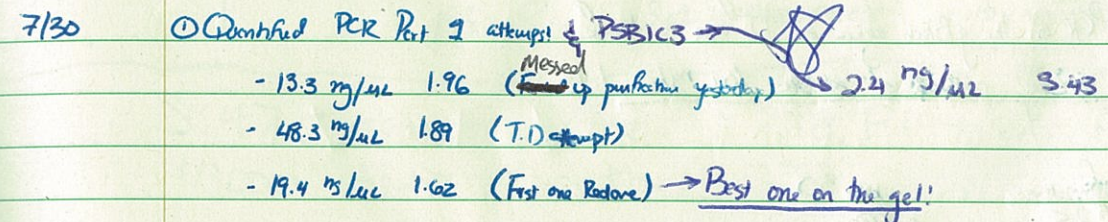 7/30 ① Quantified PCR Part 1 attempts! & PSB1C3 →
- 13.3 ng/uL 1.96 (Messed up purification yesterday) 2.4 ng/uL 3.43
- 48.3 ng/uL 1.89 (T.D attempt)
- 19.4 ng/uL 1.62 (First one Redone) → Best one on the gel!